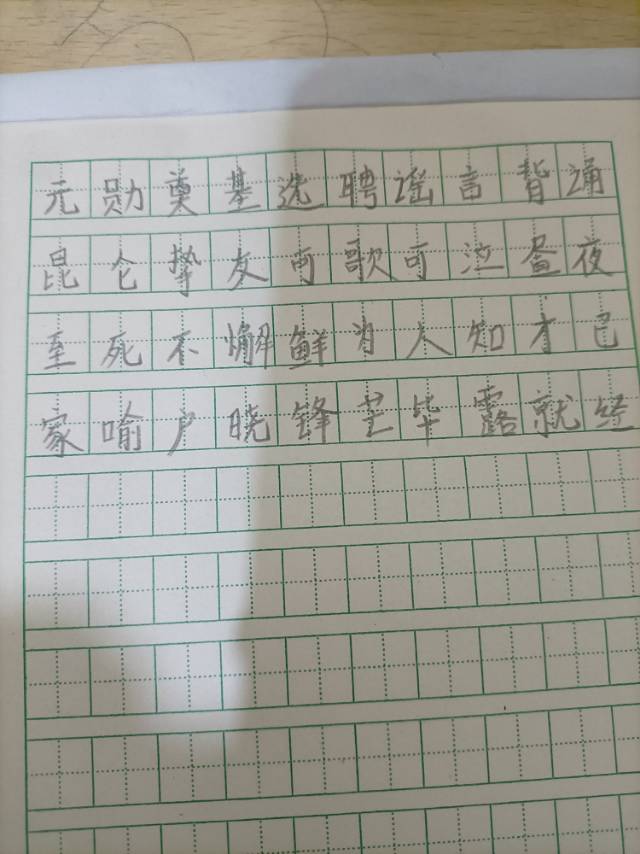 元勋奠基选聘谣言背诵
昆仑挚友可歌可泣昼夜
至死不懈鲜为人知才已
家喻户晓锋芒毕露就经